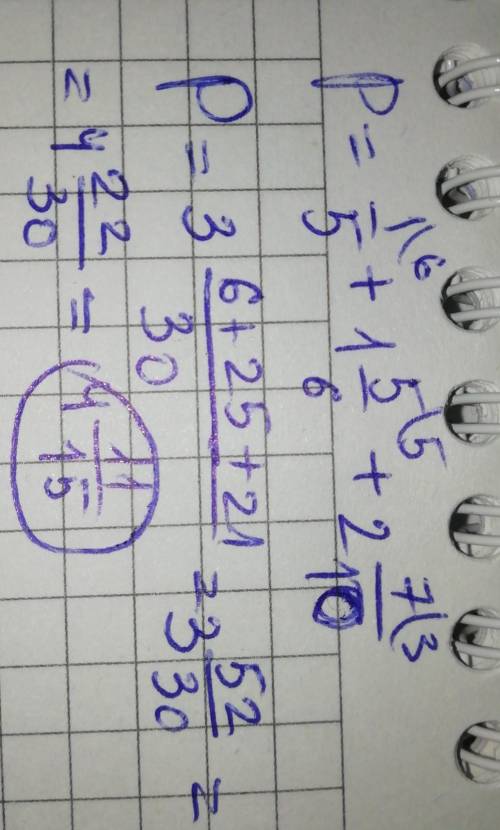 P = 1\6/5 + 1 5\5/6 + 2 7\3/10
P = 3 6+25+21/30 = 3 52/30 =
= 4 22/30 = 4 11/15